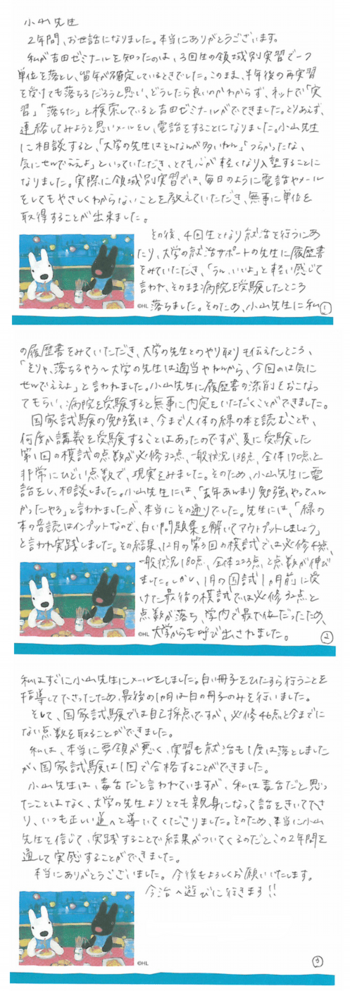 小山先生
2年間、お世話になりました。本当にありがとうございます。
私が吉田ゼミナールを知ったのは、3回生の領域別実習で一つ
単位を落とし、留年が確定しているときでした。このまま、半年後の再実習
を受けても落ちるだろうと思い、どうしたら良いかわからず、ネットで「実
習」「落ちた」と検索していると吉田ゼミナールがでてきました。とりあえず、
連絡してみようと思いメールをし、電話をすることになりました。小山先生
に相談すると、「大学の先生はそんなんが多いねん。」「つらかったな、
気にせんでええよ」といっていただき、とても心が軽くなり入塾することに
なりました。実際に領域別実習では、毎日のように電話やメール
をしてもやさしくわからないことを教えていただき、無事に単位を
取得することが出来ました。
その後、4回生となり就活を行うにあ
たり、大学の就活サポートの先生に履歴書
をみていただき、「うん、いいよ」と軽い感じで
言われ、そのまま病院を受験したところ
落ちました。そのため、小山先生に私
©HL
1
の履歴書をみていただき、大学の先生とのやり取りも伝えたところ、
「そりゃ、落ちるやろ〜大学の先生は適当やねんから、今回のは気に
せんでええよ」と言われました。小山先生に履歴書の添削をおこなっ
てもらい、病院を受験すると無事に内定をいただくことができました。
国家試験の勉強は、今まで人体の緑の本を読むことや、
何度か講義を受験することはあったのですが、夏に受験した
第1回の模試の点数が必修32点、一般状況118点、全体150点と
非常にひどい点数で、現実をみました。そのため、小山先生に電
話をし、相談しました。小山先生には、「去年あんまり勉強やってへん
かったやろ」と言われましたが、本当にその通りでした。先生には、「緑の
本の音読はインプットなので、白い問題集を解いてアウトプットしましょう」
と言われ実践しました。その結果、12月の第3回の模試では必修43点、
一般状況180点、全体223点と点数が伸び
ました。しかし、1月の国試1ヵ月前に受
けた最後の模試では必修32点と
点数が落ち、学内で最下位だったため、
大学からも呼び出されました。
©HL
2
私はすぐに小山先生にメールをしました。白い冊子をひたすら行うことを
指導して下さったため、最後の1ヵ月は白の冊子のみを行いました。
そして、国家試験では自己採点ですが、必修46点と今までに
ない点数を取ることができました。
私は、本当に要領が悪く、実習も就活も1度は落としました
が、国家試験は1回で合格することができました。
小山先生は、毒舌だと言われていますが、私は毒舌だと思っ
たことはなく、大学の先生よりとても親身になって話をきいて下さ
り、いつも正しい道へと導いてくださりました。そのため、本当に小山
先生を信じて、実践することで結果がついてくるのだとこの2年間を
通して実感することができました。
本当にありがとうございました。今後もよろしくお願いいたします。
今治へ遊びに行きます!!
©HL
3